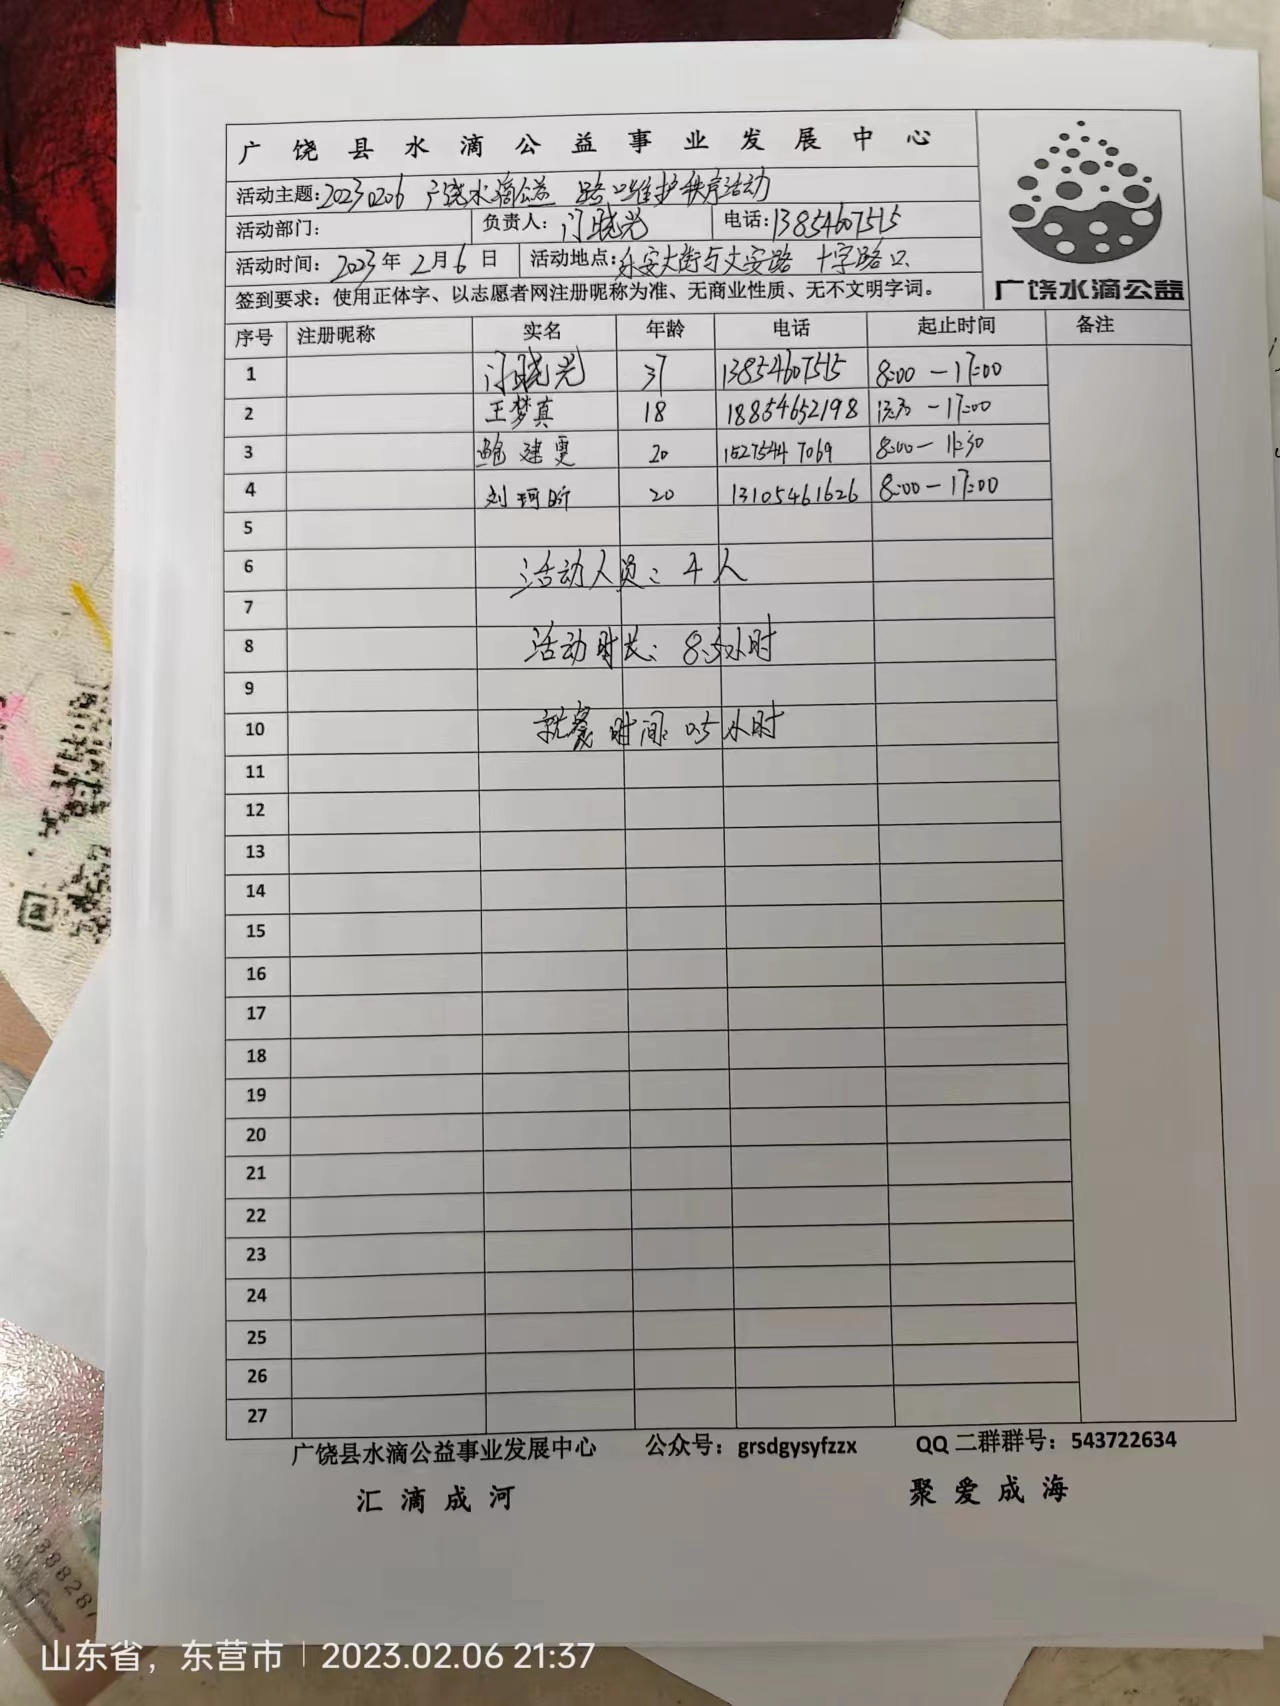 广饶县水滴公益事业发展中心
活动主题:20230206 广饶水滴公益 路口维护秩序活动
活动部门: 负责人: 门晓光 电话:13854607515
活动时间: 2023年 2月6日 活动地点:乐安大街与文安路 十字路口
签到要求: 使用正体字、以志愿者网注册昵称为准、无商业性质、无不文明字词。
广饶水滴公益
序号 注册昵称 实名 年龄 电话 起止时间 备注
1 门晓光 37 13854607515 8:00-17:00
2 王梦真 18 18854652198 -17:00
3 鲍建雯 20 15275447069 8:00-11:30
4 刘珂昕 20 13105461626 8:00-17:00
5
6 活动人员: 4人
7
8 活动时长: 8.5小时
9
10 就餐时间: 0.5小时
11
12
13
14
15
16
17
18
19
20
21
22
23
24
25
26
27
广饶县水滴公益事业发展中心 公众号: grsdgysyfzzx QQ二群群号: 543722634
汇滴成河 聚爱成海
山东省，东营市 | 2023.02.06 21:37